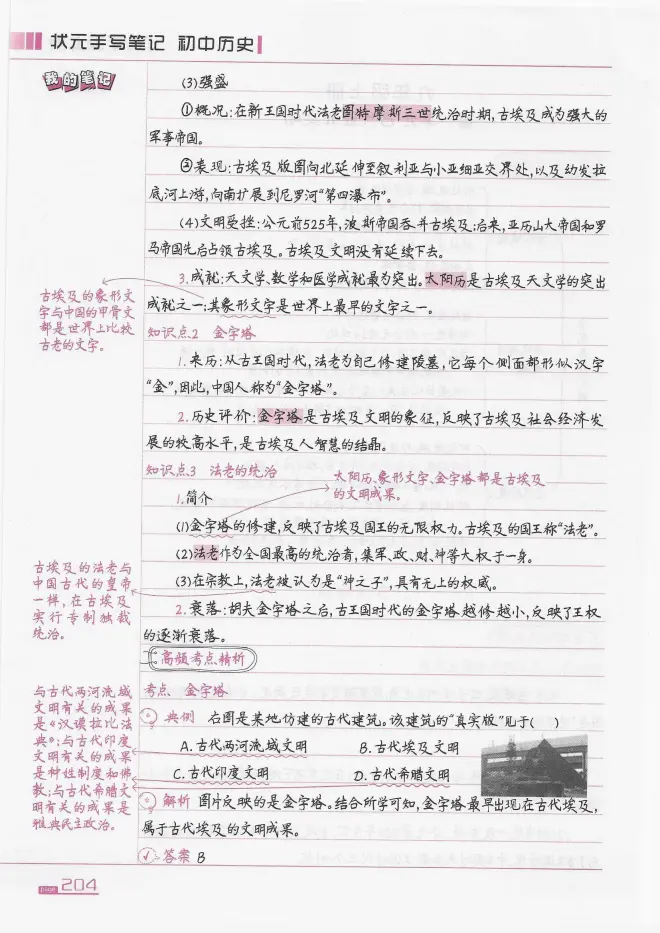 状元手写笔记 初中历史
我的笔记
(3)强盛
①概况:在新王国时代法老图特摩斯三世统治时期,古埃及成为强大的
军事帝国。
②表现:古埃及版图向北延伸至叙利亚与小亚细亚交界处,以及幼发拉
底河上游,向南扩展到尼罗河“第四瀑布”。
(4)文明受挫:公元前525年,波斯帝国吞并古埃及;后来,亚历山大帝国和罗
马帝国先后占领古埃及。古埃及文明没有延续下去。
3.成就:天文学、数学和医学成就最为突出。太阳历是古埃及天文学的突出
成就之一;其象形文字是世界上最早的文字之一。
古埃及的象形文
字与中国的甲骨文
都是世界上比较
古老的文字。
知识点2 金字塔
1.来历:从古王国时代,法老为自己修建陵墓,它每个侧面都形似汉字
“金”,因此,中国人称为“金字塔”。
2.历史评价:金字塔是古埃及文明的象征,反映了古埃及社会经济发
展的较高水平,是古埃及人智慧的结晶。
知识点3 法老的统治
太阳历、象形文字、金字塔都是古埃及
的文明成果。
1.简介
(1)金字塔的修建,反映了古埃及国王的无限权力。古埃及的国王称“法老”。
(2)法老作为全国最高的统治者,集军、政、财、神等大权于一身。
(3)在宗教上,法老被认为是“神之子”,具有无上的权威。
古埃及的法老与
中国古代的皇帝
一样,在古埃及
实行专制独裁
统治。
2.衰落:胡夫金字塔之后,古王国时代的金字塔越修越小,反映了王权
的逐渐衰落。
高频考点精析
考点 金字塔
典例 右图是某地仿建的古代建筑。该建筑的“真实版”见于( )
A.古代两河流域文明 B.古代埃及文明
C.古代印度文明 D.古代希腊文明
与古代两河流域
文明有关的成果
是《汉谟拉比法
典》;与古代印度
文明有关的成果
是种姓制度和佛
教;与古代希腊文
明有关的成果是
雅典民主政治。
解析 图片反映的是金字塔。结合所学可知,金字塔最早出现在古代埃及,
属于古代埃及的文明成果。
答案 B
page 204